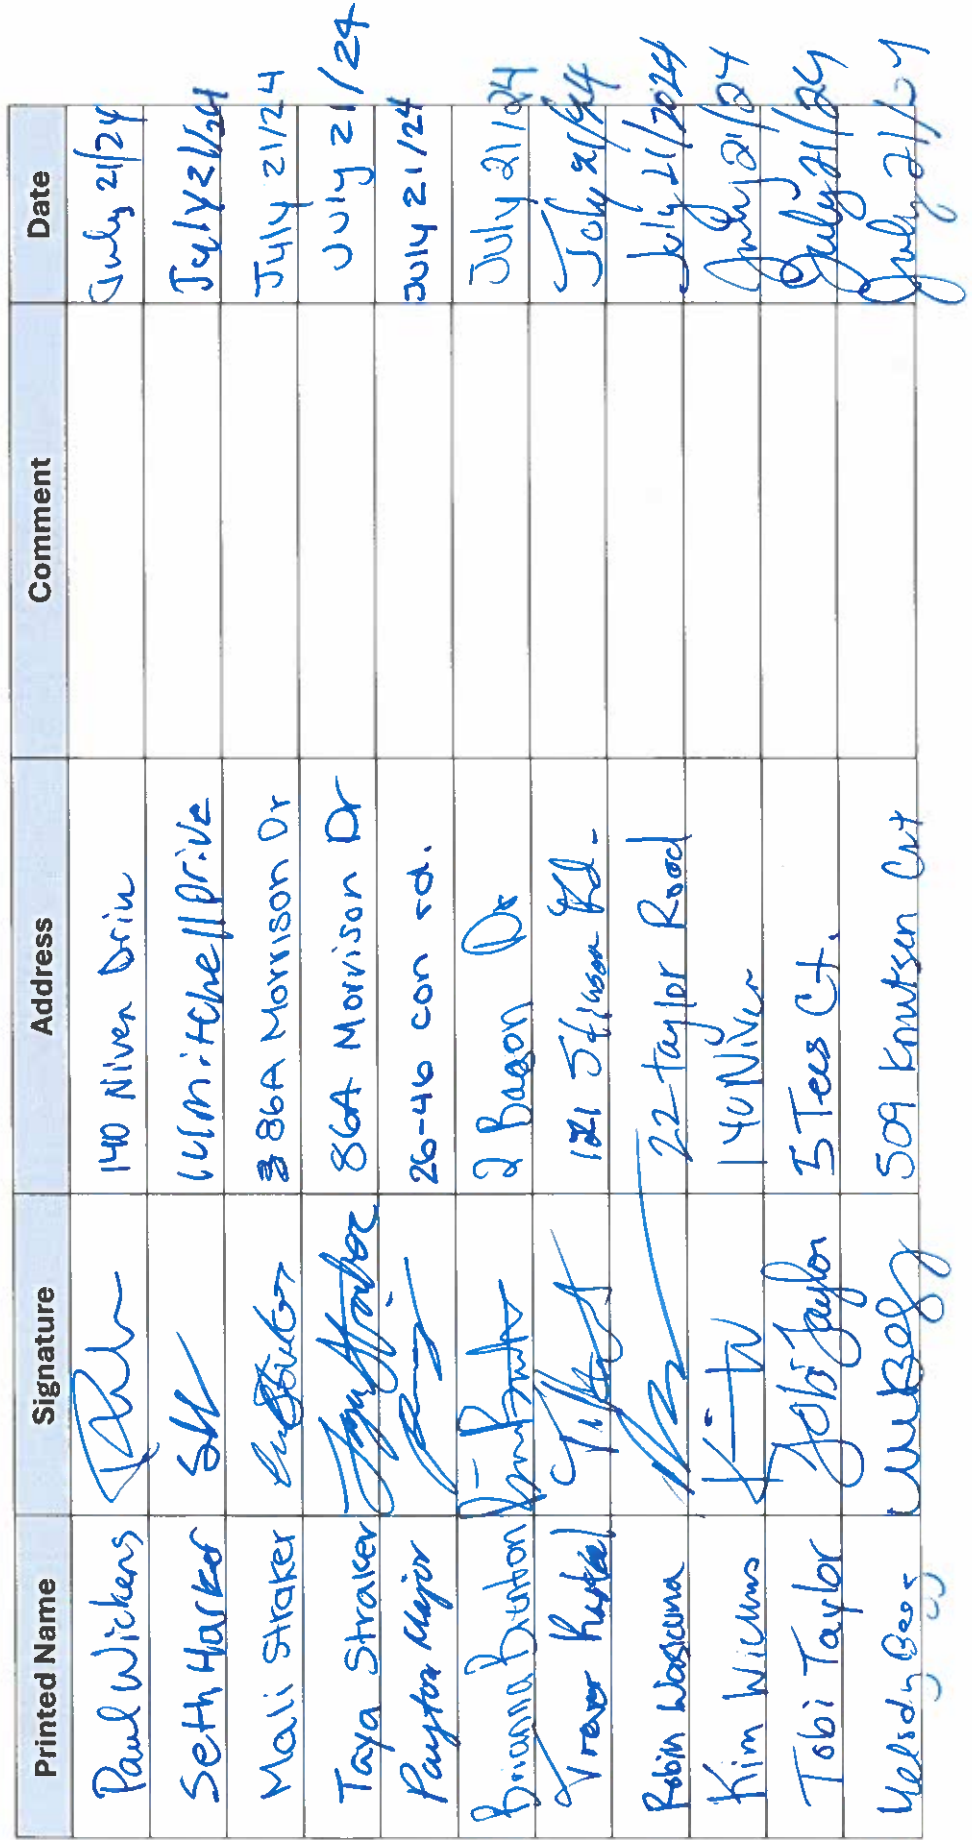 Printed Name Signature Address Comment Date
Paul Wickens 140 Niven Driv July 21/24
Seth Harker Mitchell Drive July 21/24
Mali Straker 86A Morrison Dr July 21/24
Taya Straker 86A Morrison Dr July 21/24
Payton Major 26-46 con rd. July 21/24
Brianna Brunton 2 Bagon Dr July 21/24
Trever 121 Rd. July 21/24
Robin 22 taylor Road July 21/2024
Kim Wickens 140 Niven July 21/24
Tobi Taylor Tobi Taylor 5 Tees Ct. July 21/24
Melody 509 Knutsen Crt July 21/24